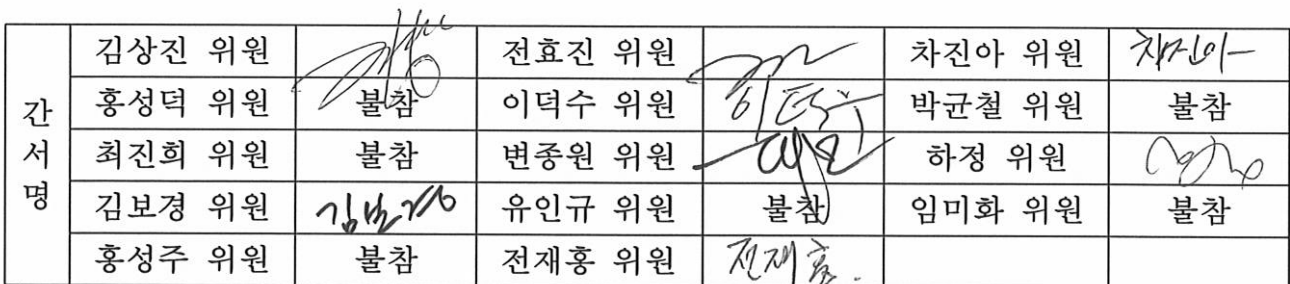 간서명
김상진 위원 전효진 위원 차진아 위원 차진아
홍성덕 위원 불참 이덕수 위원 이덕수 박균철 위원 불참
최진희 위원 불참 변종원 위원 하정 위원
김보경 위원 김보경 유인규 위원 불참 임미화 위원 불참
홍성주 위원 불참 전재홍 위원 전재홍